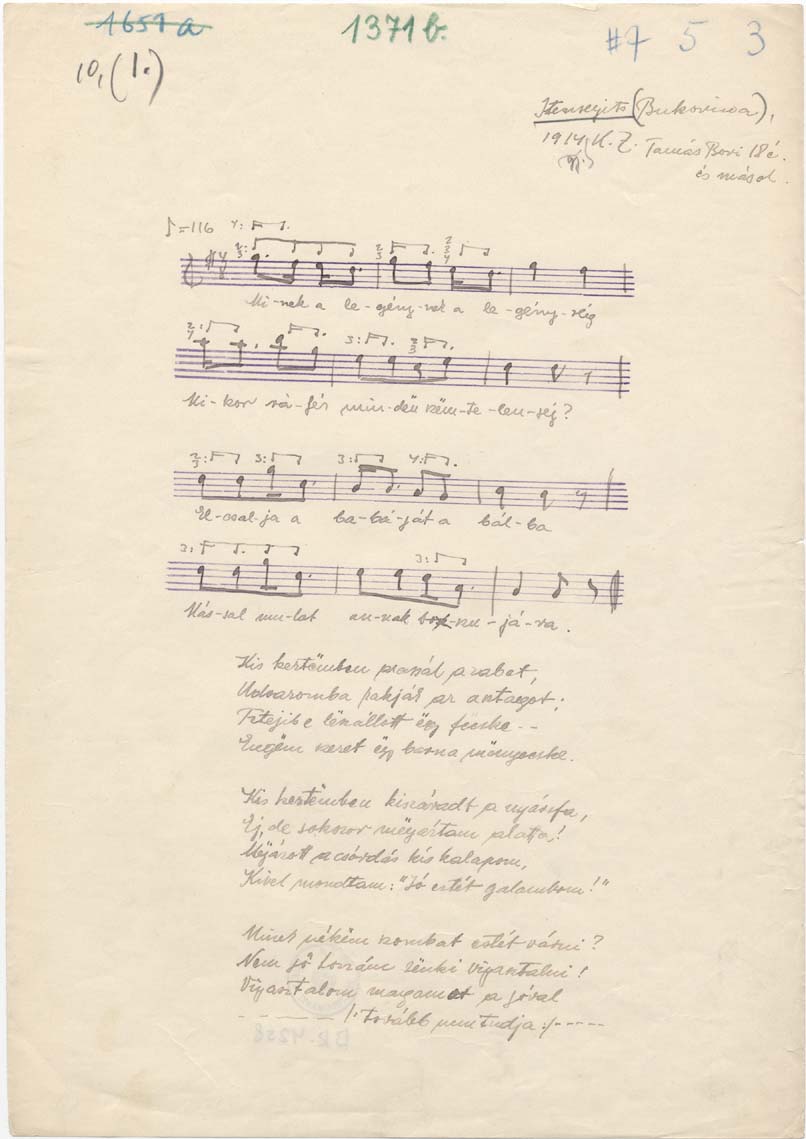 1651 a
1371 b.
#4 5 3
10, (1.)
Istensegits (Bukovina),
1914 K. Z. Tamás Bori 18 é.
és mások.
♪=116 4:
2/3: 2/3 2/3/4
Mi-nek a le-gény-nek a le-gény-ség
2/4: 3: 2/3
Mi-kor rá-fér min-dën këm-te-len-ség?
2/3: 3: 3: 4:
El-csal-ja a ba-bá-ját a bál-ba
3: 3:
Más-sal mu-lat an-nak -já-ra.
Kis kertëmben a zabot,
Udvaromba rakják az asztagot;
Tetejibe lëszállott ëgy fecske--
Engëm keret ëgy barna mënyecske.
Kis kertëmben kiszáradt a nyásfa,
Ej, de sokszor mëgáztam alatta!
Mëjázott a csárdás kis kalapom,
Kivel mondtam: "Jó estét galambom!"
Minek nékëm szombat estét várni?
Nem jő hozzám sënki vigasztalni!
Vigasztalom magamot a jóval
- - - - - /: tovább nem tudja :/ - - - - -
BR. 4258